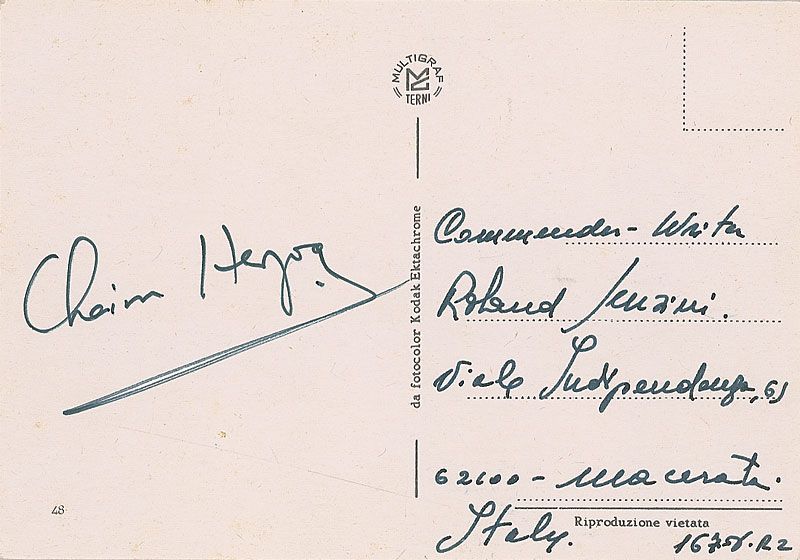 MULTIGRAF
TERNI
Chaim Herzog
da fotocolor Kodak Ektachrome
Commender - Writer
Roland
Viale Indipendenza, 61
62100 - Macerata.
Italy.
48
Riproduzione vietata